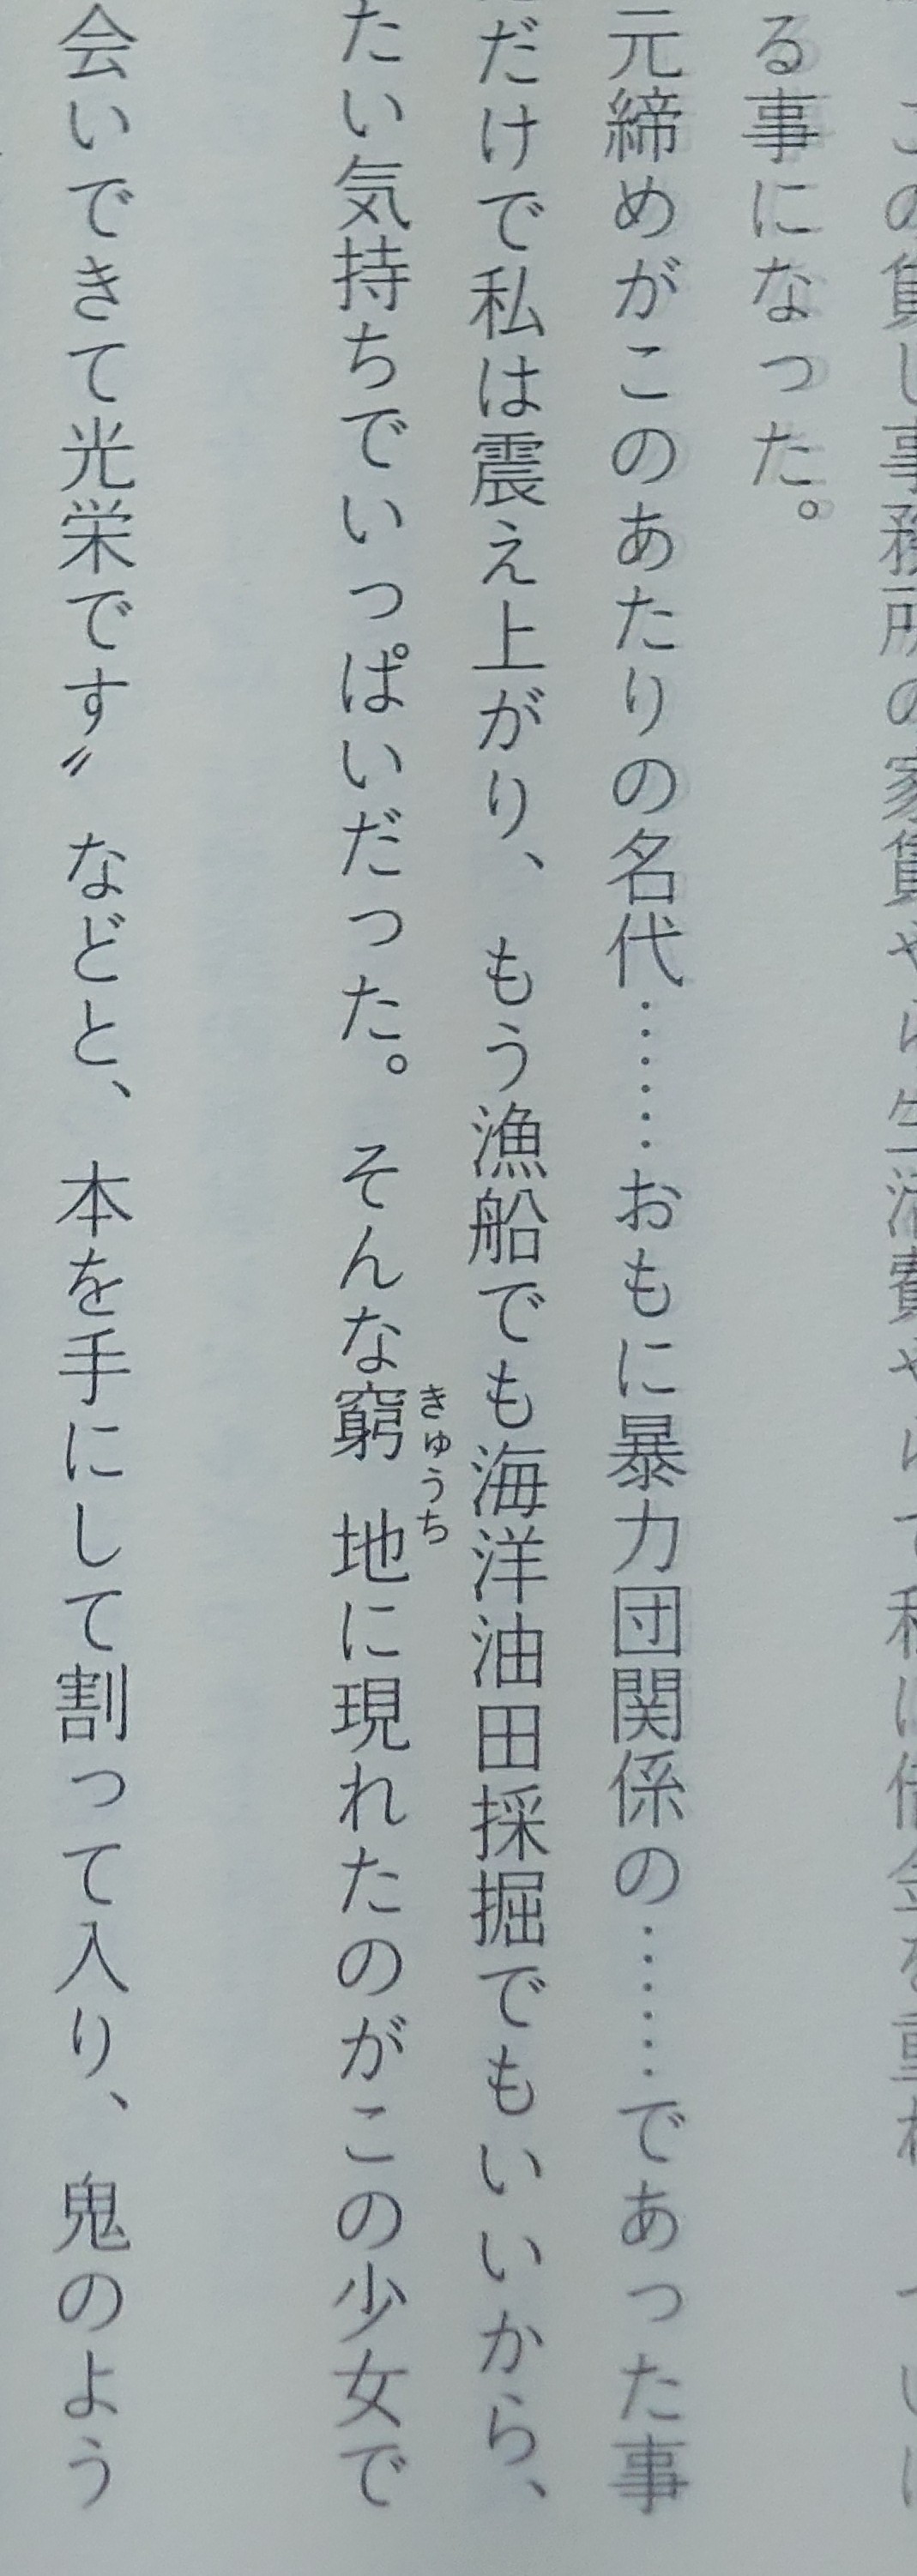 この賃し事務所の家賃やら生活費やらで私は借金を重ね、ついに
る事になった。
元締めがこのあたりの名代………おもに暴力団関係の………であった事
だけで私は震え上がり、もう漁船でも海洋油田採掘でもいいから、
たい気持ちでいっぱいだった。そんな窮地に現れたのがこの少女で
きゅうち
会いできて光栄です〟などと、本を手にして割って入り、鬼のよう